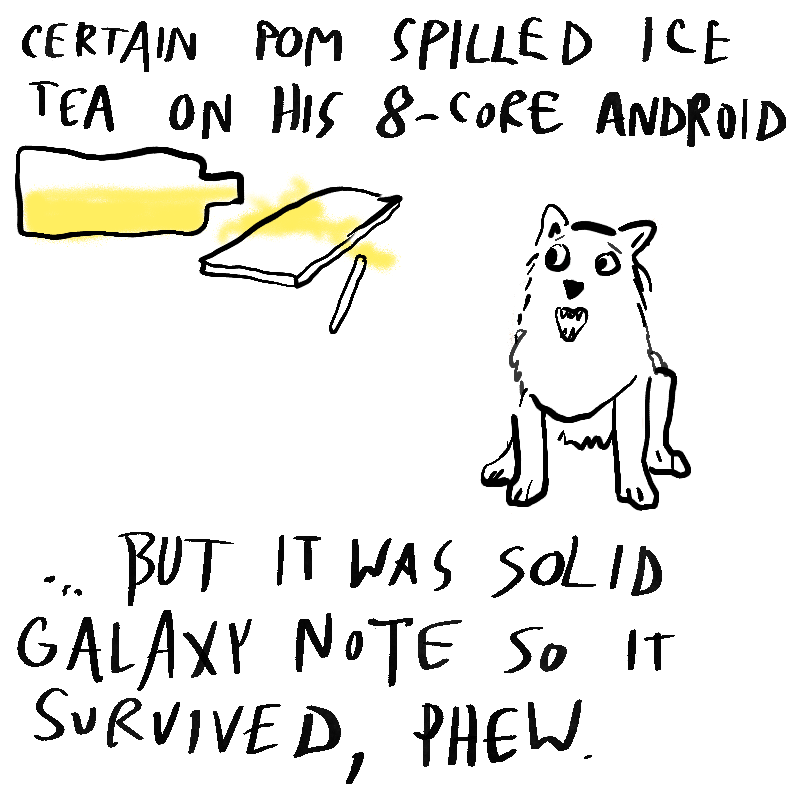 CERTAIN POM SPILLED ICE
TEA ON HIS 8-CORE ANDROID
... BUT IT WAS SOLID
GALAXY NOTE SO IT
SURVIVED, PHEW.